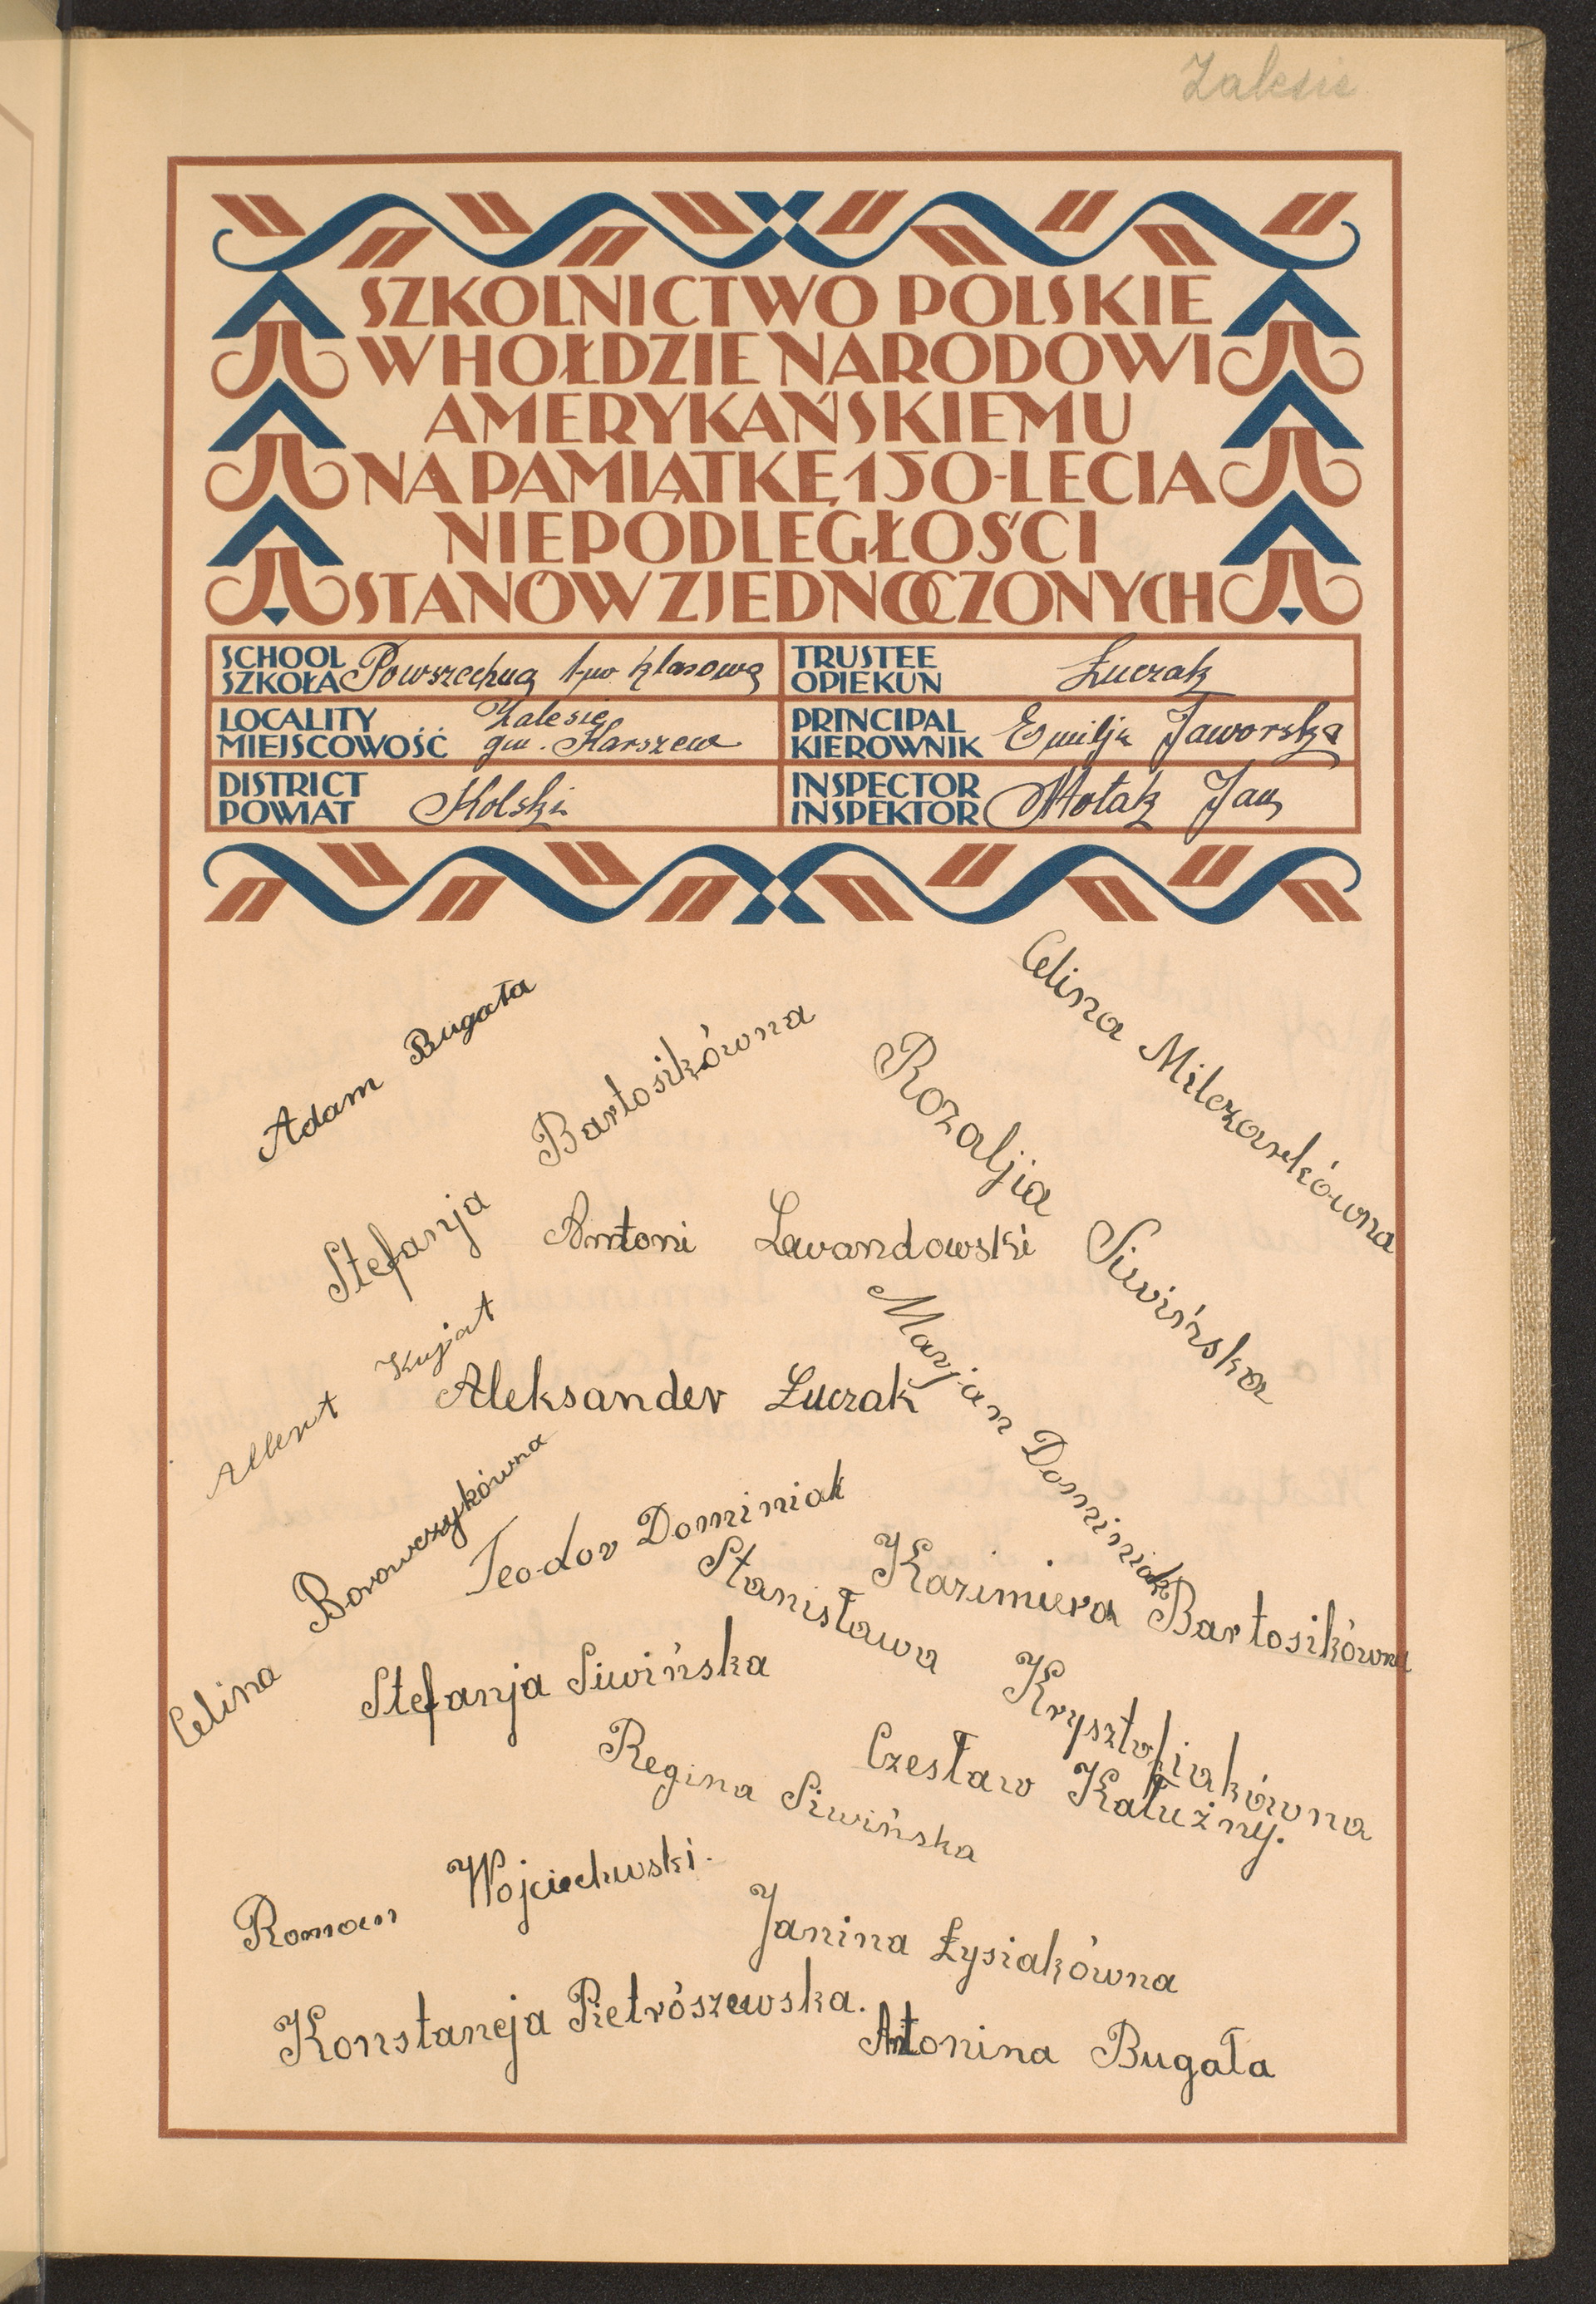 Zalesie
SZKOLNICTWO POLSKIE
W HOŁDZIE NARODOWI
AMERYKAŃSKIEMU
NA PAMIĄTKĘ 150-LECIA
NIEPODLEGŁOŚCI
STANÓW ZJEDNOCZONYCH
SCHOOL
SZKOŁA Powszechna 1-no klasowa
TRUSTEE
OPIEKUN Łuczak
LOCALITY Zalesie
MIEJSCOWOŚĆ gm. Karszew
PRINCIPAL
KIEROWNIK Emilja Jaworska
DISTRICT
POWIAT Kolski
INSPECTOR
INSPEKTOR Motak Jan
Adam Bugała
Celina Milczarkówna
Stefanja Bartosikówna
Rozalja Siwińska
Antoni Lewandowski
Albert Kujat
Marjan Dominiak
Aleksander Łuczak
Celina Borowczykówna
Teodor Dominiak
Kazimiera Bartosikówna
Stanisława Krysztofiakówna
Stefanja Siwińska
Regina Siwińska
Czesław Kałużny.
Roman Wojciechwski.
Janina Łysiakówna
Konstancja Pietrószewska.
Antonina Bugała